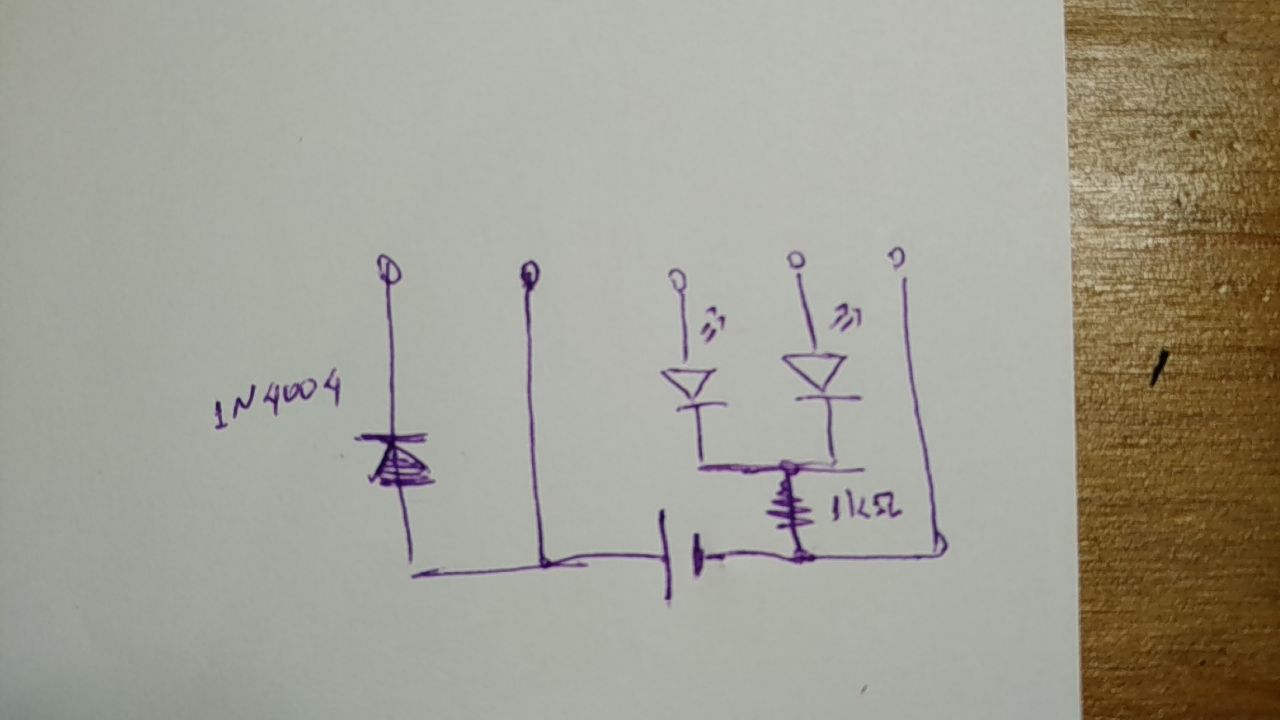 1N4004
1kΩ